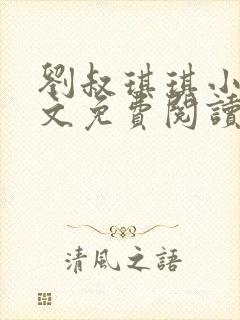 劉叔琪琪小
文免費閱讀
清風之語